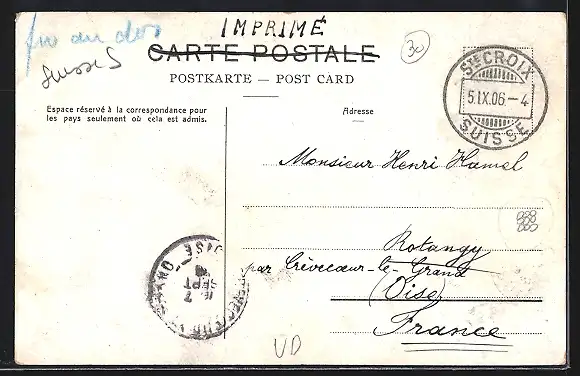 IMPRIMÉ
CARTE POSTALE
30
POSTKARTE — POST CARD
Suisse
STE CROIX
5.IX.06.—4
SUISSE
Espace réservé à la correspondance pour
les pays seulement où cela est admis.
Adresse
Monsieur Henri Hamel
Rotangy
par Crèvecœur-le-Grand
(Oise)
France
OISE
7
SEPT
VD